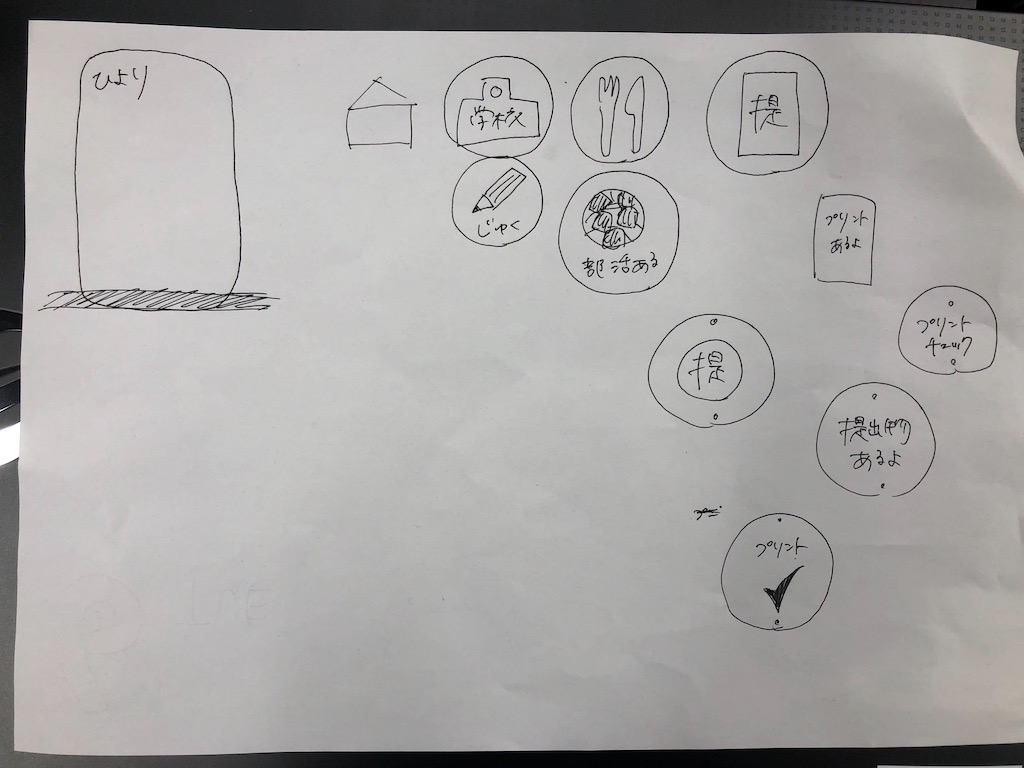 ひより
学校
提
じゅく
部活ある
プリント
あるよ
プリント
チェック
提
提出物
あるよ
プリント